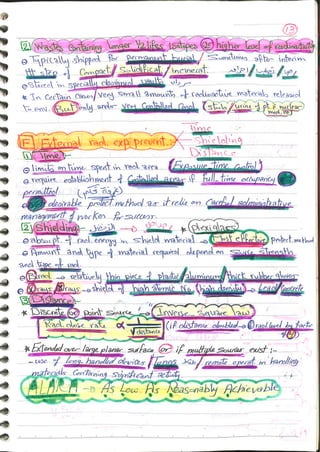 13
2 Wastes Containing longer ½ lifes isotopes or higher level of radioactivity
Typically shipped for permanent burial / Sometimes after interim
step of Compact / Solidificat / incinerat.
Stored in specially designed vaults
* In Certain Cases / Very small amounts of radioactive materials released
in env. But only under very Controlled Cond. (stools / urine of pt of nuclear med.)
E External rad. exp prevent :-
time
Shielding
Distance
1 Time :
limits on time spent in rad area (Exposure time Control)
require establishment of Controlled areas if full time occupancy
permitted
desirable protect. method as it relies on Careful administrative
management of worker for success.
2 Shielding : plexiglass
absorpt. of rad. energy in shield material → Most effective protect. method
Amount and type of material required depend on Source strength
and type of rad.
B rad → relatively thin piece of plastic / aluminum / thick rubber gloves
rays / X rays → shield of high atomic No. / high density → Lead / Concrete
3 Distance :
* Discrete or point Source → "Inverse Square law"
Rad. dose rate α 1/√distance (if distance doubled → rad level by factor
* Extended over large planar surface or if multiple sources exist :-
use of long handled devices / tongs / remote operat. in handling
materials Containing significant activity
ALARA → As Low As Reasonably Achievable